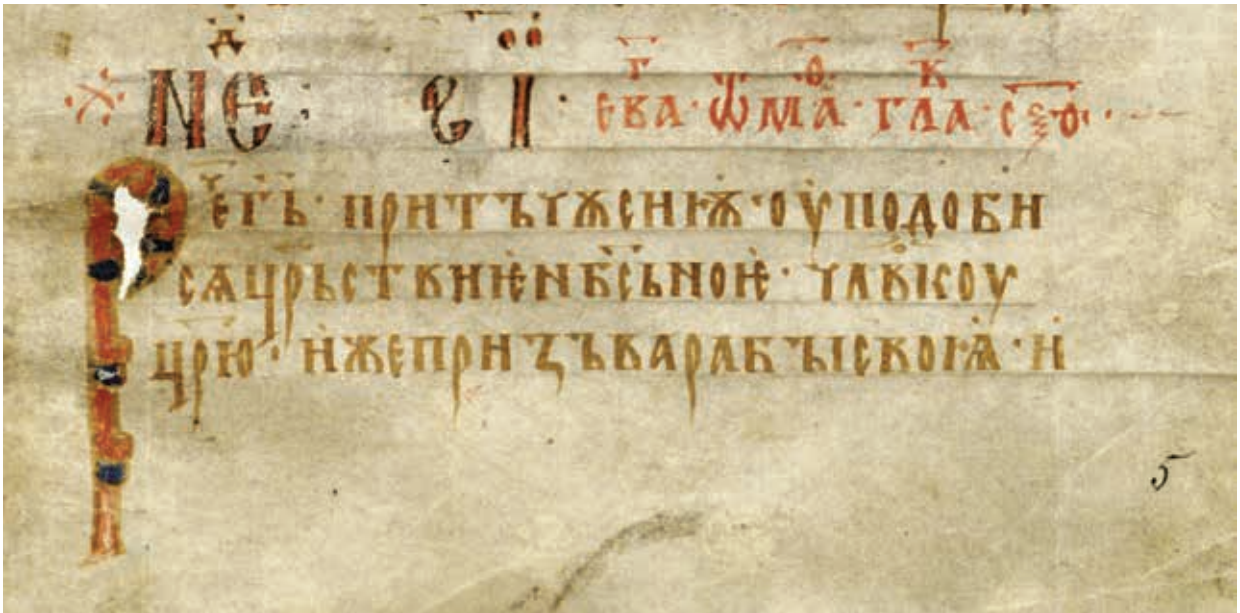 НЕД҃ : ВІ · ЕВАГ҃ · Ѿ МАѲ҃ · ГЛАК҃ · С҃Ѯ҃О ·
Рече г҃ь · притъчѫ сниѭ · оуподоби
сѧ цр҃ьствиѥ нб҃сьноѥ · чл҃вкоу
цр҃ю · иже призъва рабꙑ своѩ · и
5